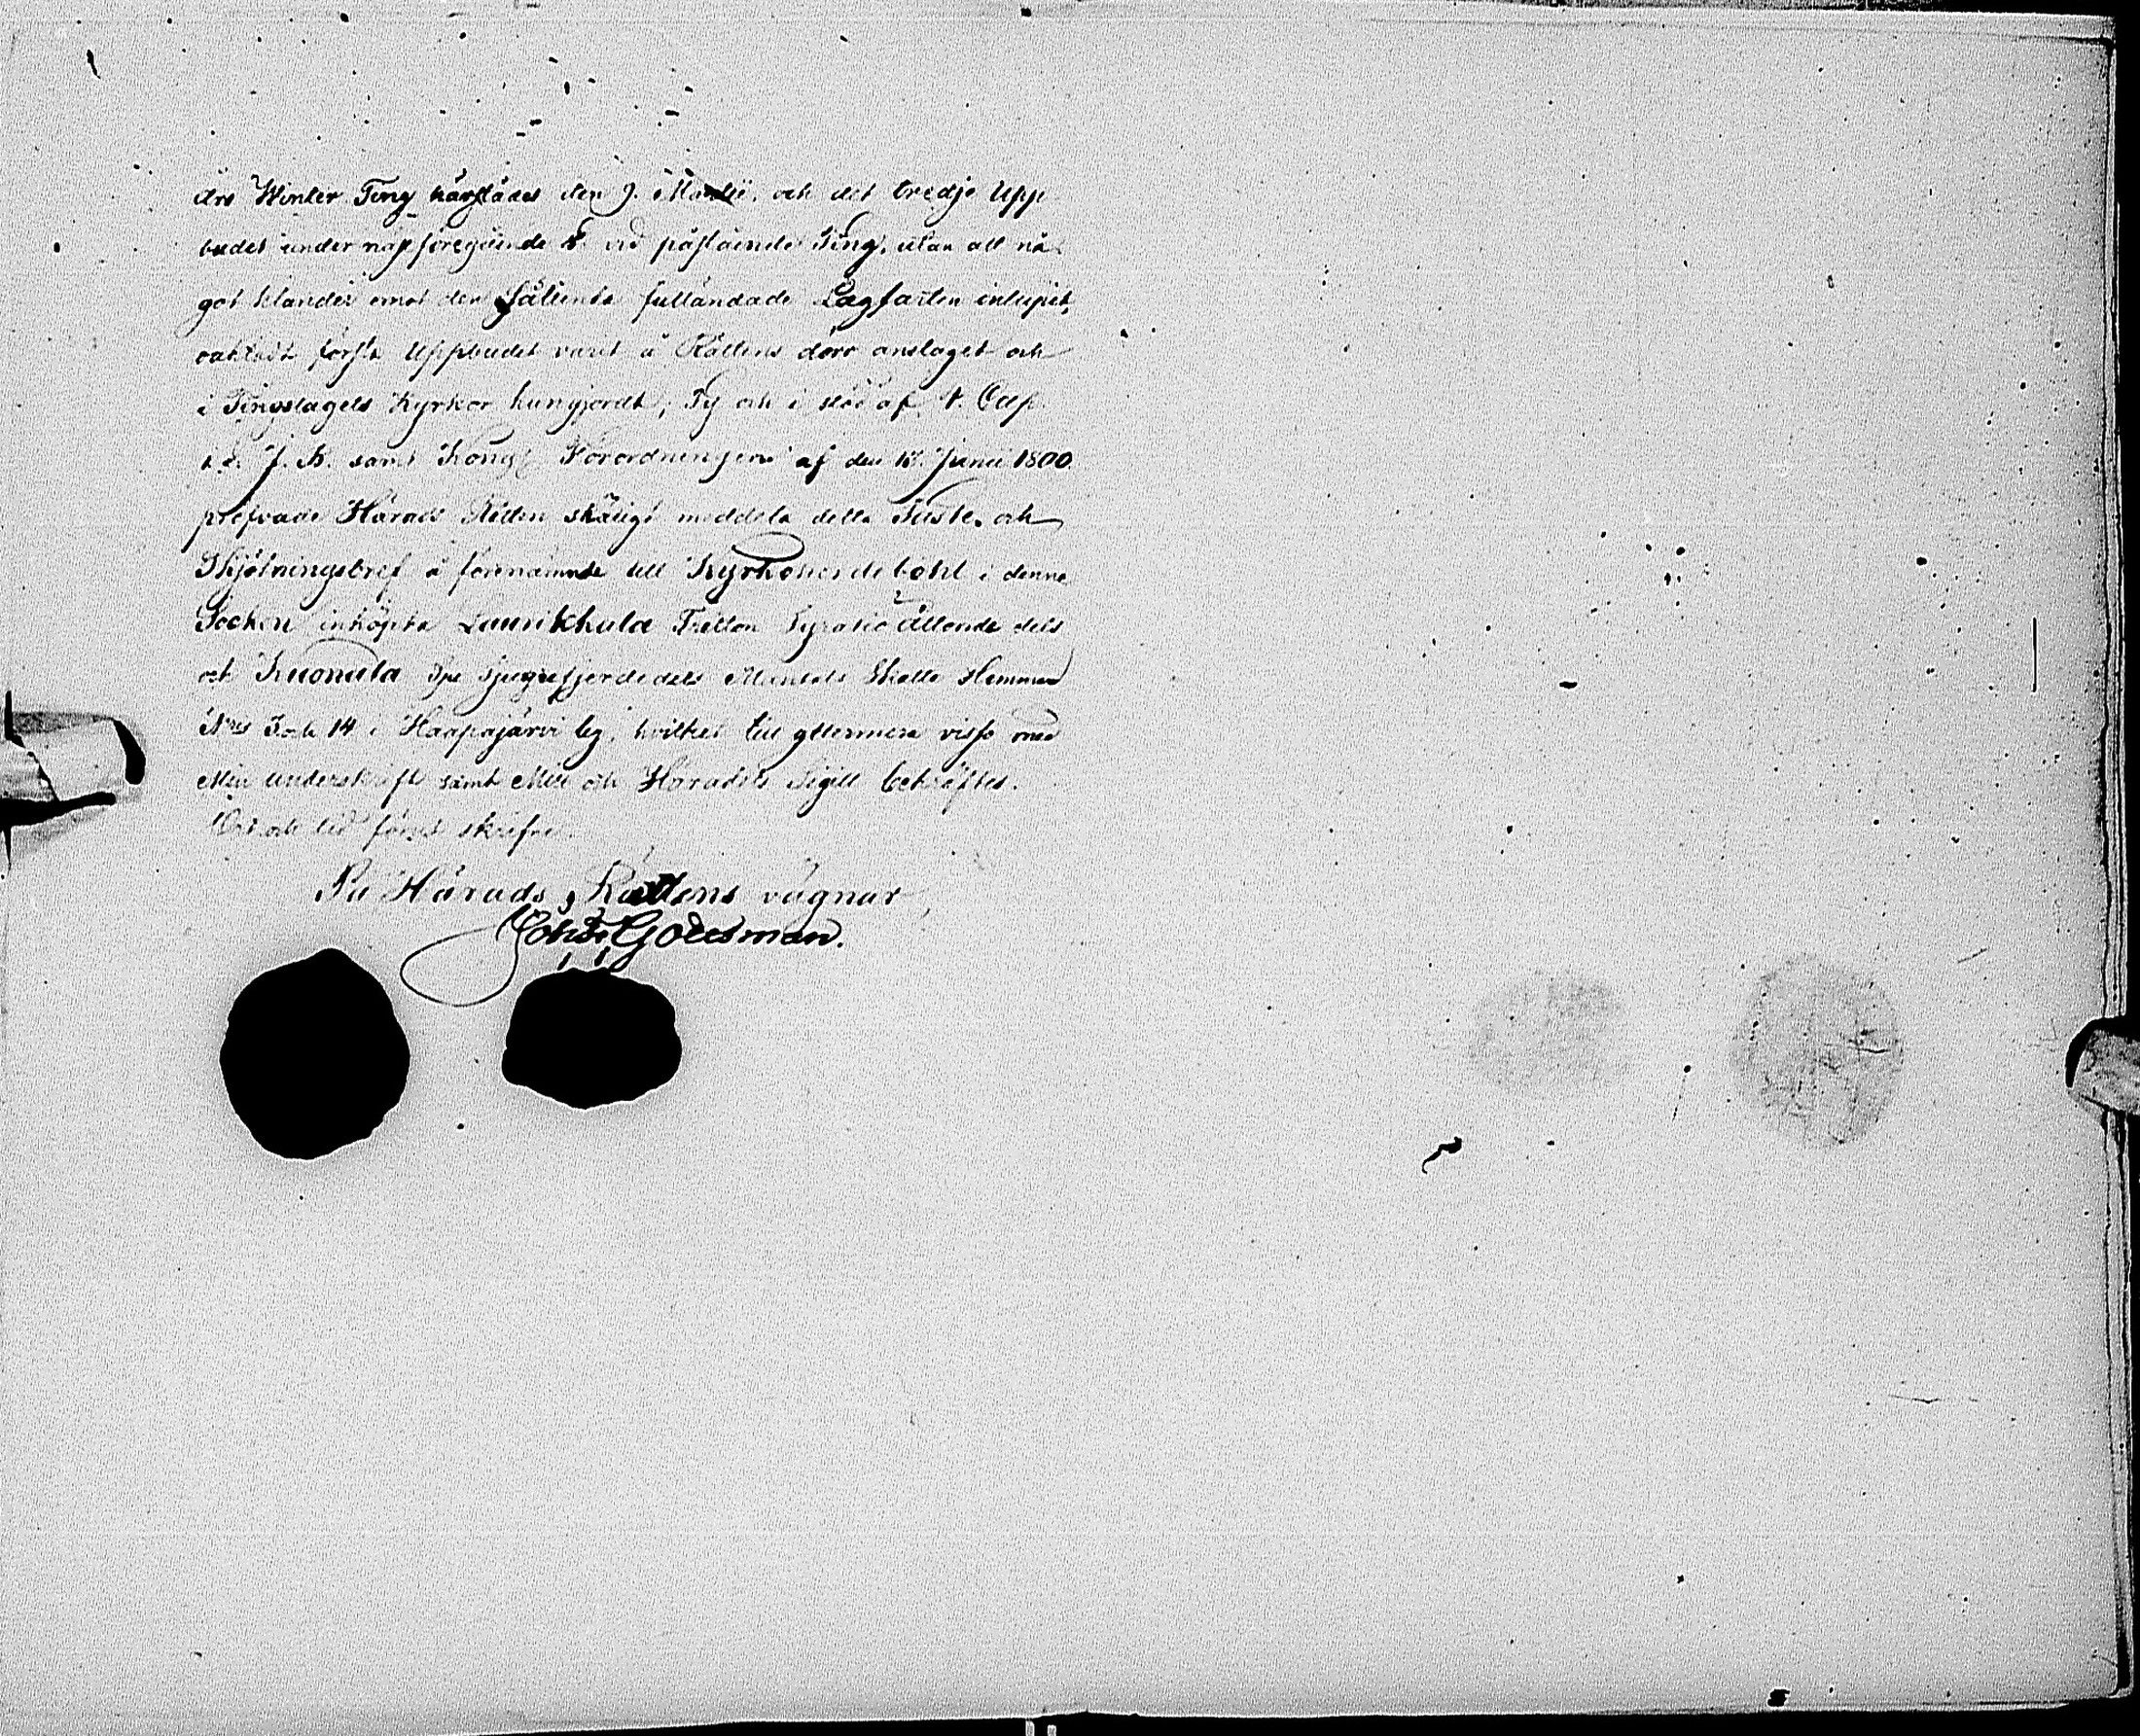 års Winter Ting härstädes den 9. Martii, och det tredje Upp
budet under näst föregående §. vid påstående Ting, utan att nå-
got klander emot den sålunda fulländade Lagfarten inlupit,
oaktadt första Uppbudet varit å Rättens dörr anslaget och
i Tingslagets Kyrkor kungjordt; Ty och i stöd af 4. Cap.
J. B. samt Kongl Förordningen af den 13. Junii 1800.
pröfvade Härads Rätten skäligt meddela detta Faste- och
Skjötningsbref å förenämnde till Kyrkoherdebohl i denne
Socken inköpta Laurikkala Tretton Fyratioåttonde dels
och Kuonula Sju Tjugufjerdedels Mantals Skatte Hemman
N:ris 3 och 14 i Haapajärvi by, hvilket till yttermera visso med
Min underskrift samt Mitt och Häradets Sigill bekräftes.
Ort och tid förut skrefne.
På Härads Rättens vägnar,
Johan Godesman.